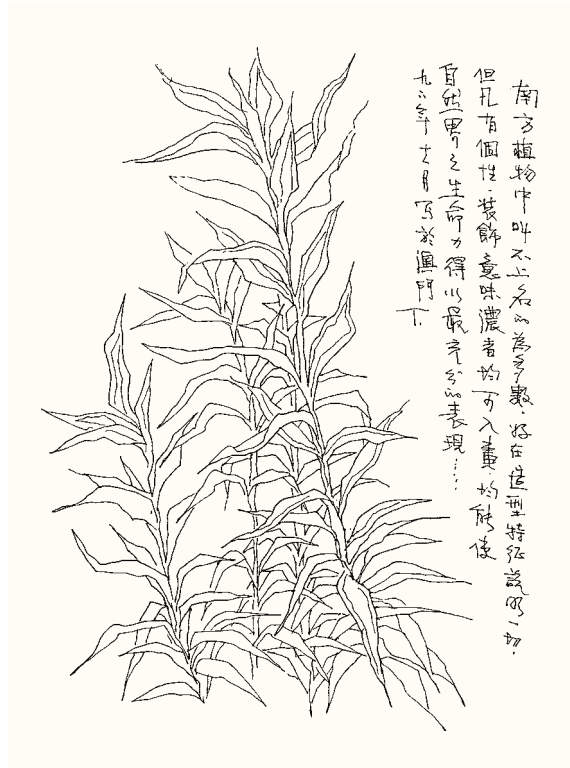 南方植物中叫不上名的為多數.好在造型特征說明一切.
但凡有個性.裝飾意味濃者均可入畫.均能使
自然界之生命力得以最充分的表現……
九六年十月写於澳門 T.